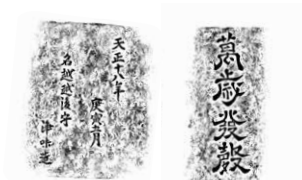 天正十八年
庚寅月
名越越後守
浄味造
萬歳發